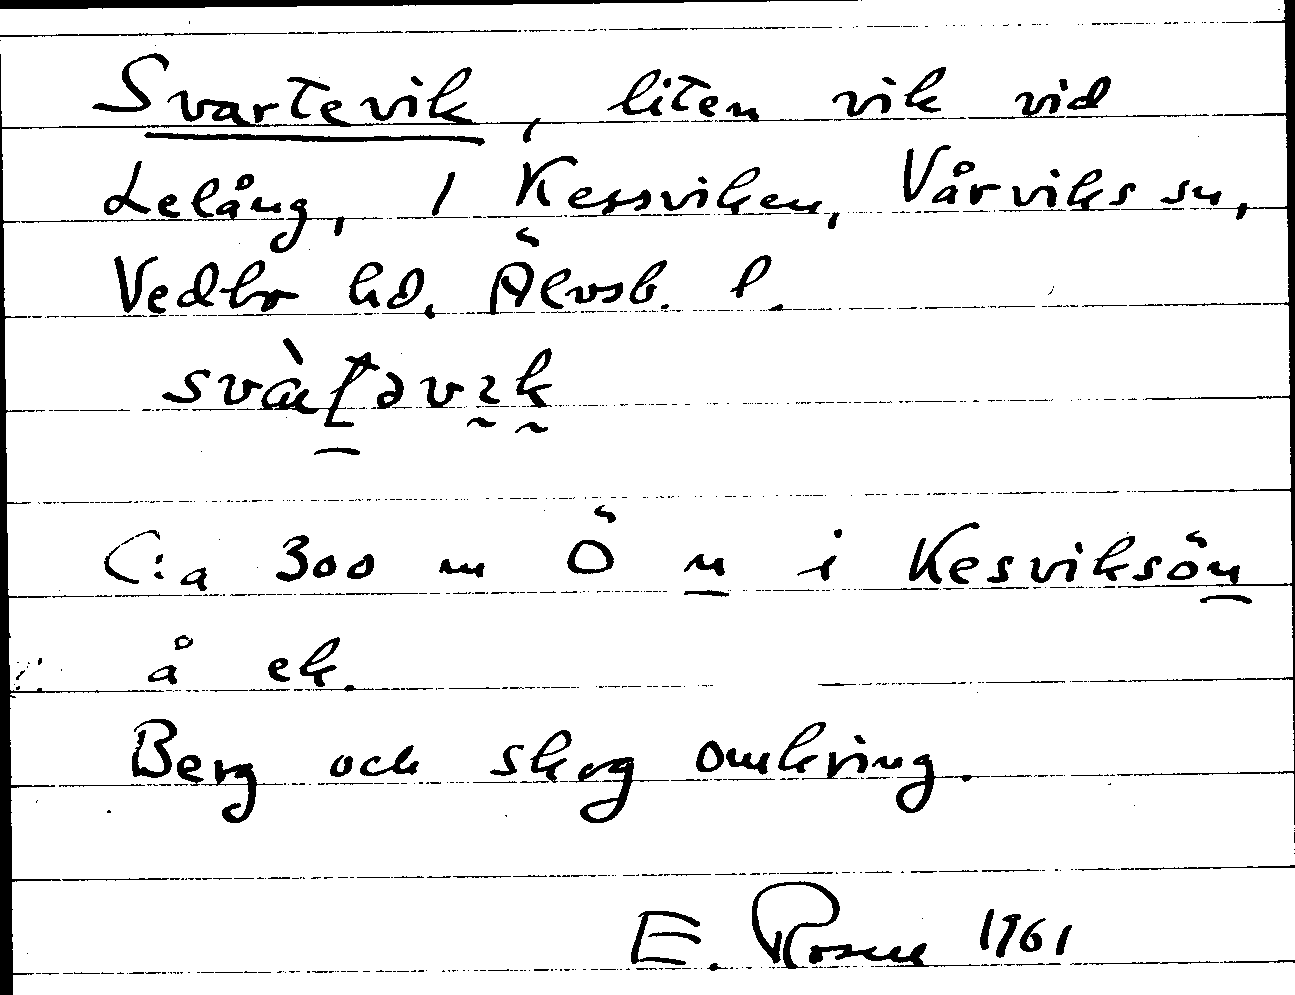 Svartevik, liten vik vid
Lelång, 1 Kessviken, Vårviks sn,
Vedbo hd. Älvsb. l.
C:a 300 m Ö n i Kesviksön
å ek.
Berg och skog omkring.
E. Rosen 1961